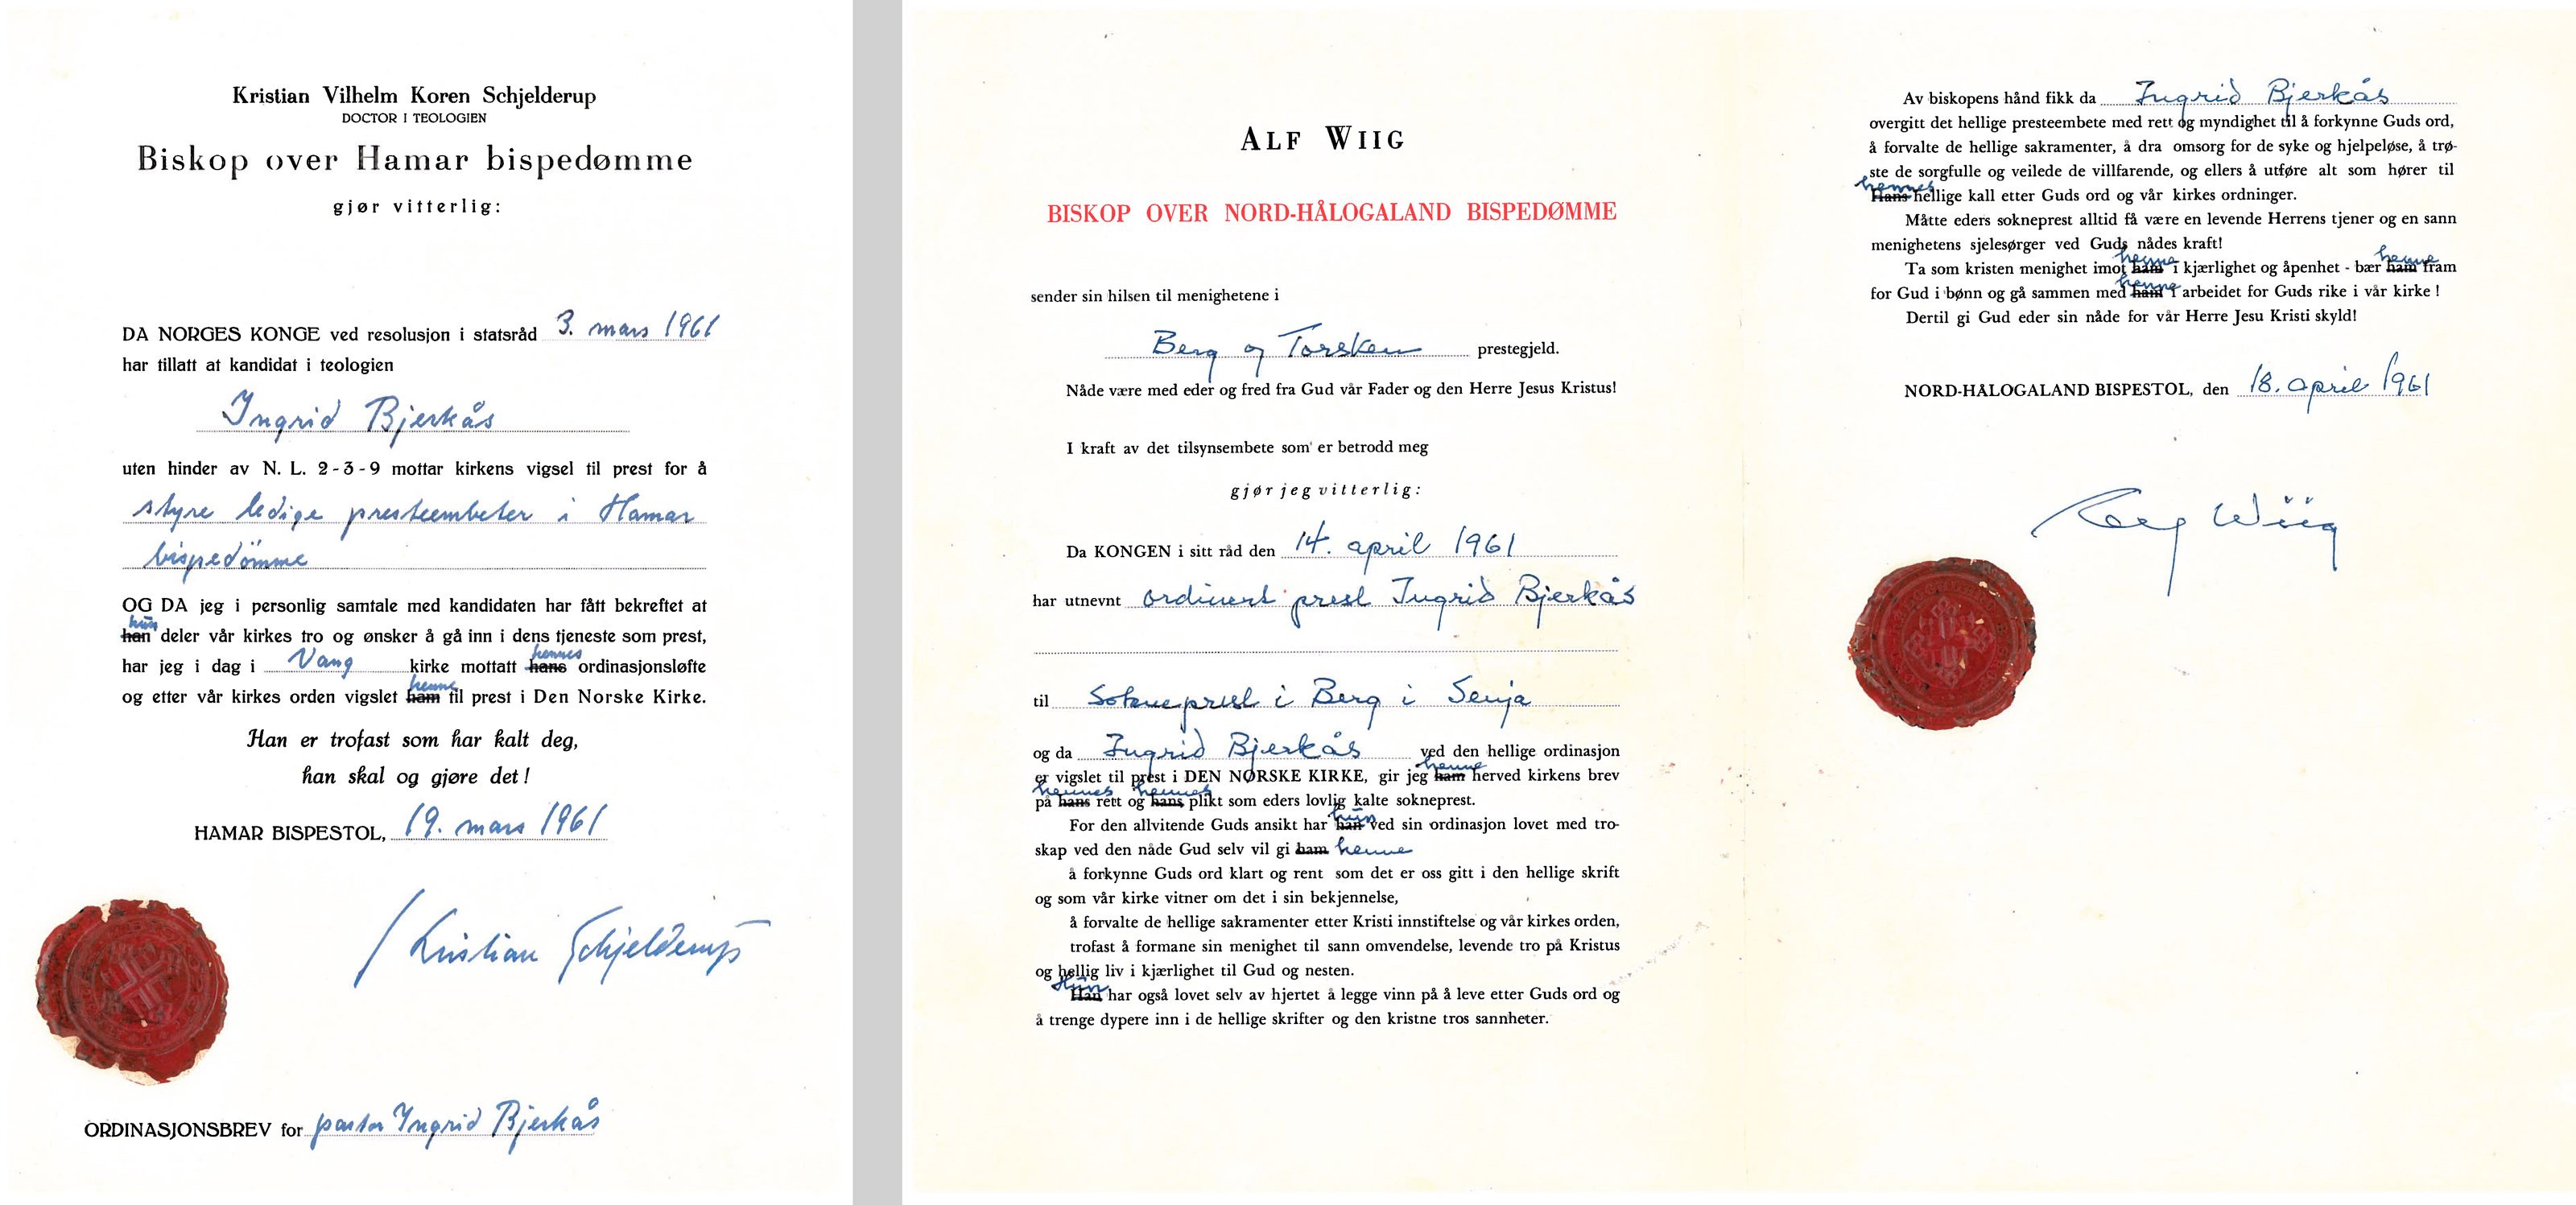 Kristian Vilhelm Koren Schjelderup
DOCTOR I TEOLOGIEN
Biskop over Hamar bispedømme
gjør vitterlig:
DA NORGES KONGE ved resolusjon i statsråd 3. mars 1961
har tillatt at kandidat i teologien
Ingrid Bjerkås
uten hinder av N. L. 2-3-9 mottar kirkens vigsel til prest for å
styre ledige presteembeter i Hamar
bispedömme
OG DA jeg i personlig samtale med kandidaten har fått bekreftet at
hun
han deler vår kirkes tro og ønsker å gå inn i dens tjeneste som prest,
hennes
har jeg i dag i Vang kirke mottatt hans ordinasjonsløfte
henne
og etter vår kirkes orden vigslet ham til prest i Den Norske Kirke.
Han er trofast som har kalt deg,
han skal og gjøre det!
HAMAR BISPESTOL, 19. mars 1961
Kristian Schjelderup
ORDINASJONSBREV for pastor Ingrid Bjerkås
ALF WIIG
BISKOP OVER NORD-HÅLOGALAND BISPEDØMME
sender sin hilsen til menighetene i
Berg og Torsken prestegjeld.
Nåde være med eder og fred fra Gud vår Fader og den Herre Jesus Kristus!
I kraft av det tilsynsembete som er betrodd meg
gjør jeg vitterlig:
Da KONGEN i sitt råd den 14. april 1961
har utnevnt ordinert prest Ingrid Bjerkås
til Sokneprest i Berg i Senja
og da Ingrid Bjerkås ved den hellige ordinasjon
henne
er vigslet til prest i DEN NORSKE KIRKE, gir jeg ham herved kirkens brev
hennes hennes
på hans rett og hans plikt som eders lovlig kalte sokneprest.
hun
For den allvitende Guds ansikt har han ved sin ordinasjon lovet med tro-
skap ved den nåde Gud selv vil gi ham henne
å forkynne Guds ord klart og rent som det er oss gitt i den hellige skrift
og som vår kirke vitner om det i sin bekjennelse,
å forvalte de hellige sakramenter etter Kristi innstiftelse og vår kirkes orden,
trofast å formane sin menighet til sann omvendelse, levende tro på Kristus
og hellig liv i kjærlighet til Gud og nesten.
Hun
Han har også lovet selv av hjertet å legge vinn på å leve etter Guds ord og
å trenge dypere inn i de hellige skrifter og den kristne tros sannheter.
Av biskopens hånd fikk da Ingrid Bjerkås
overgitt det hellige presteembete med rett og myndighet til å forkynne Guds ord,
å forvalte de hellige sakramenter, å dra omsorg for de syke og hjelpeløse, å trø-
ste de sorgfulle og veilede de villfarende, og ellers å utføre alt som hører til
hennes
Hans hellige kall etter Guds ord og vår kirkes ordninger.
Måtte eders sokneprest alltid få være en levende Herrens tjener og en sann
menighetens sjelesørger ved Guds nådes kraft!
henne henne
Ta som kristen menighet imot ham i kjærlighet og åpenhet - bær ham fram
henne
for Gud i bønn og gå sammen med ham i arbeidet for Guds rike i vår kirke!
Dertil gi Gud eder sin nåde for vår Herre Jesu Kristi skyld!
NORD-HÅLOGALAND BISPESTOL, den 18. april 1961
Wiig